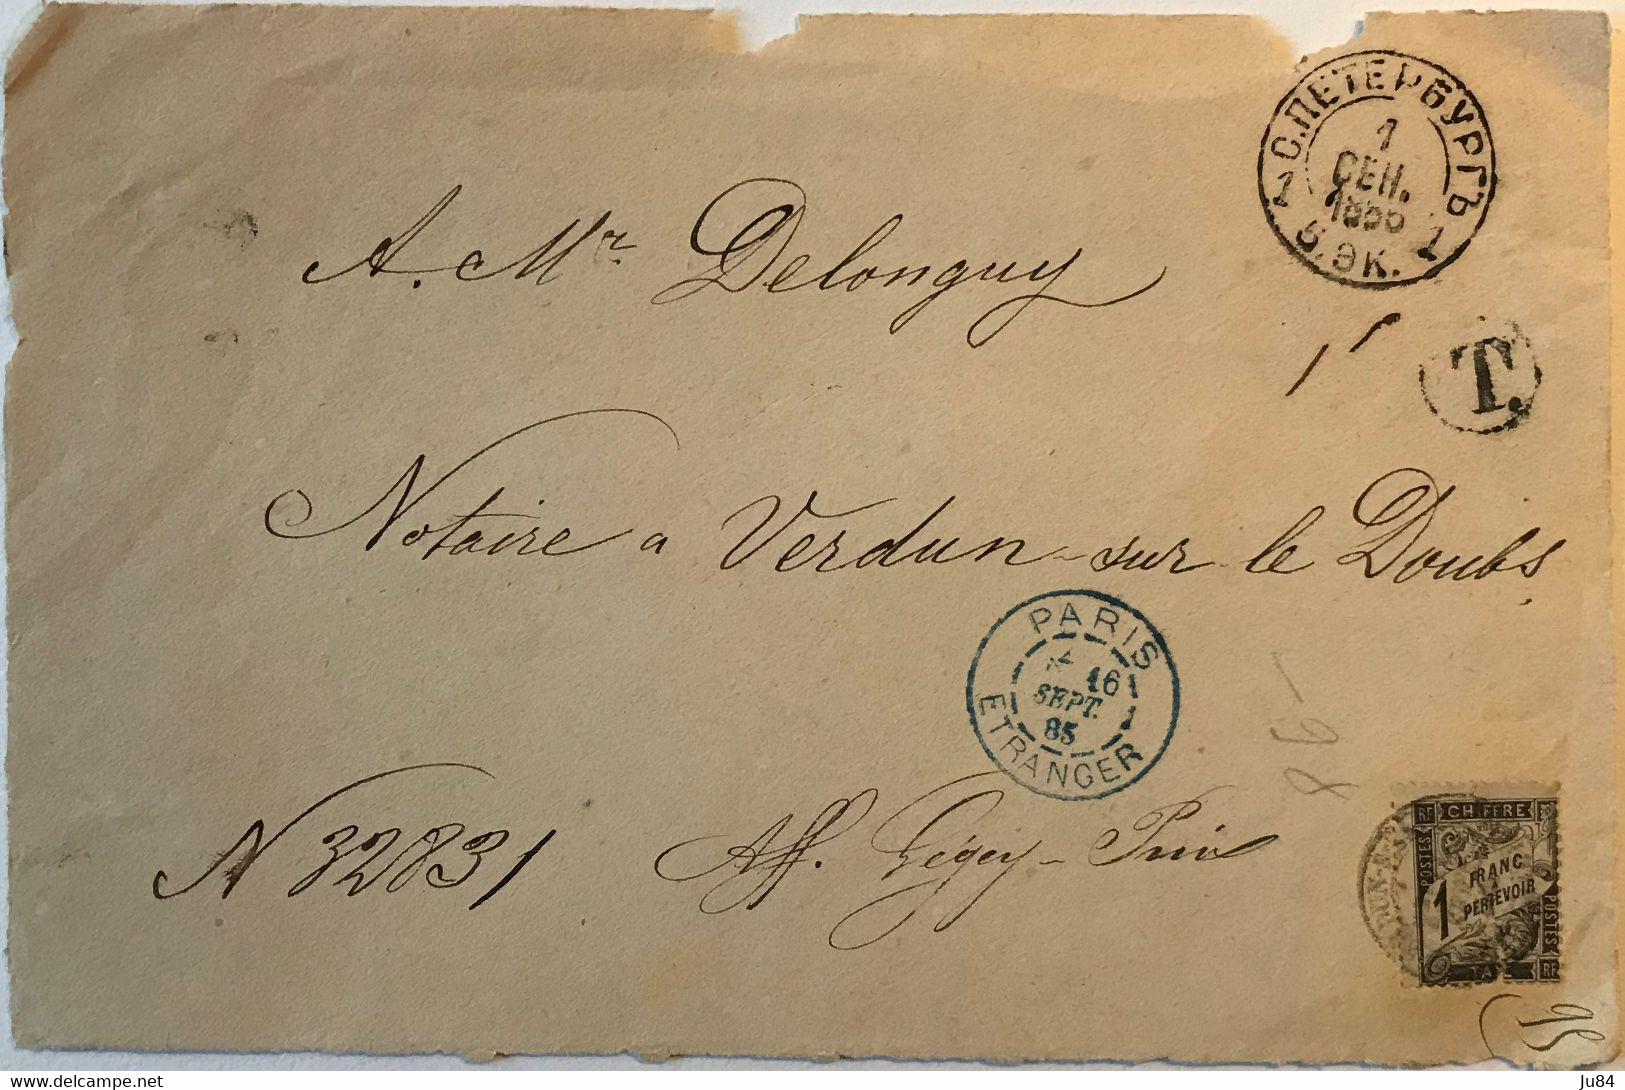 С.ПЕТЕРБУРГЪ
1
СЕН.
1 5.ЭК. 1
A. Mr. Delonguy
1
T.
Notaire a Verdun-sur-le Doubs
PARIS
16
SEPT.
85
ETRANGER
86-
N 32831 Aff. Gegey-Prix
RF CHIFFRE
POSTES
1 FRANC
PERCEVOIR
POSTES
TAXE RF
Ju84